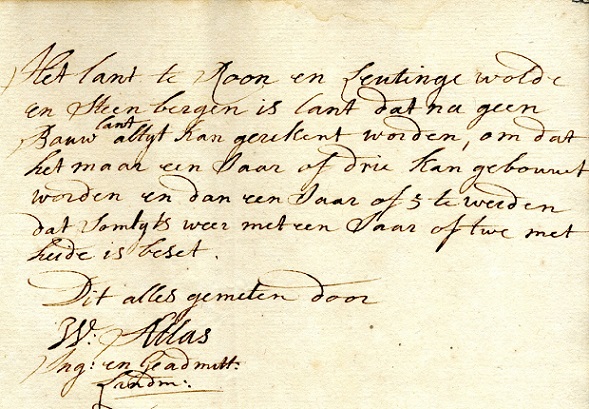 Het lant te Roon en Leutinge wolde
en Steenbergen is lant dat na geen
Bauw lant altyt kan gerekent worden, om dat
het maar een Jaar of drie kan gebouwt
worden en dan een Jaar of 5 te werden
dat Somtyts weer met een Jaar of twe met
heide is beset.
Dit alles gemeten door
W: Atlas
Ing: en Geadmitt:
Landm: